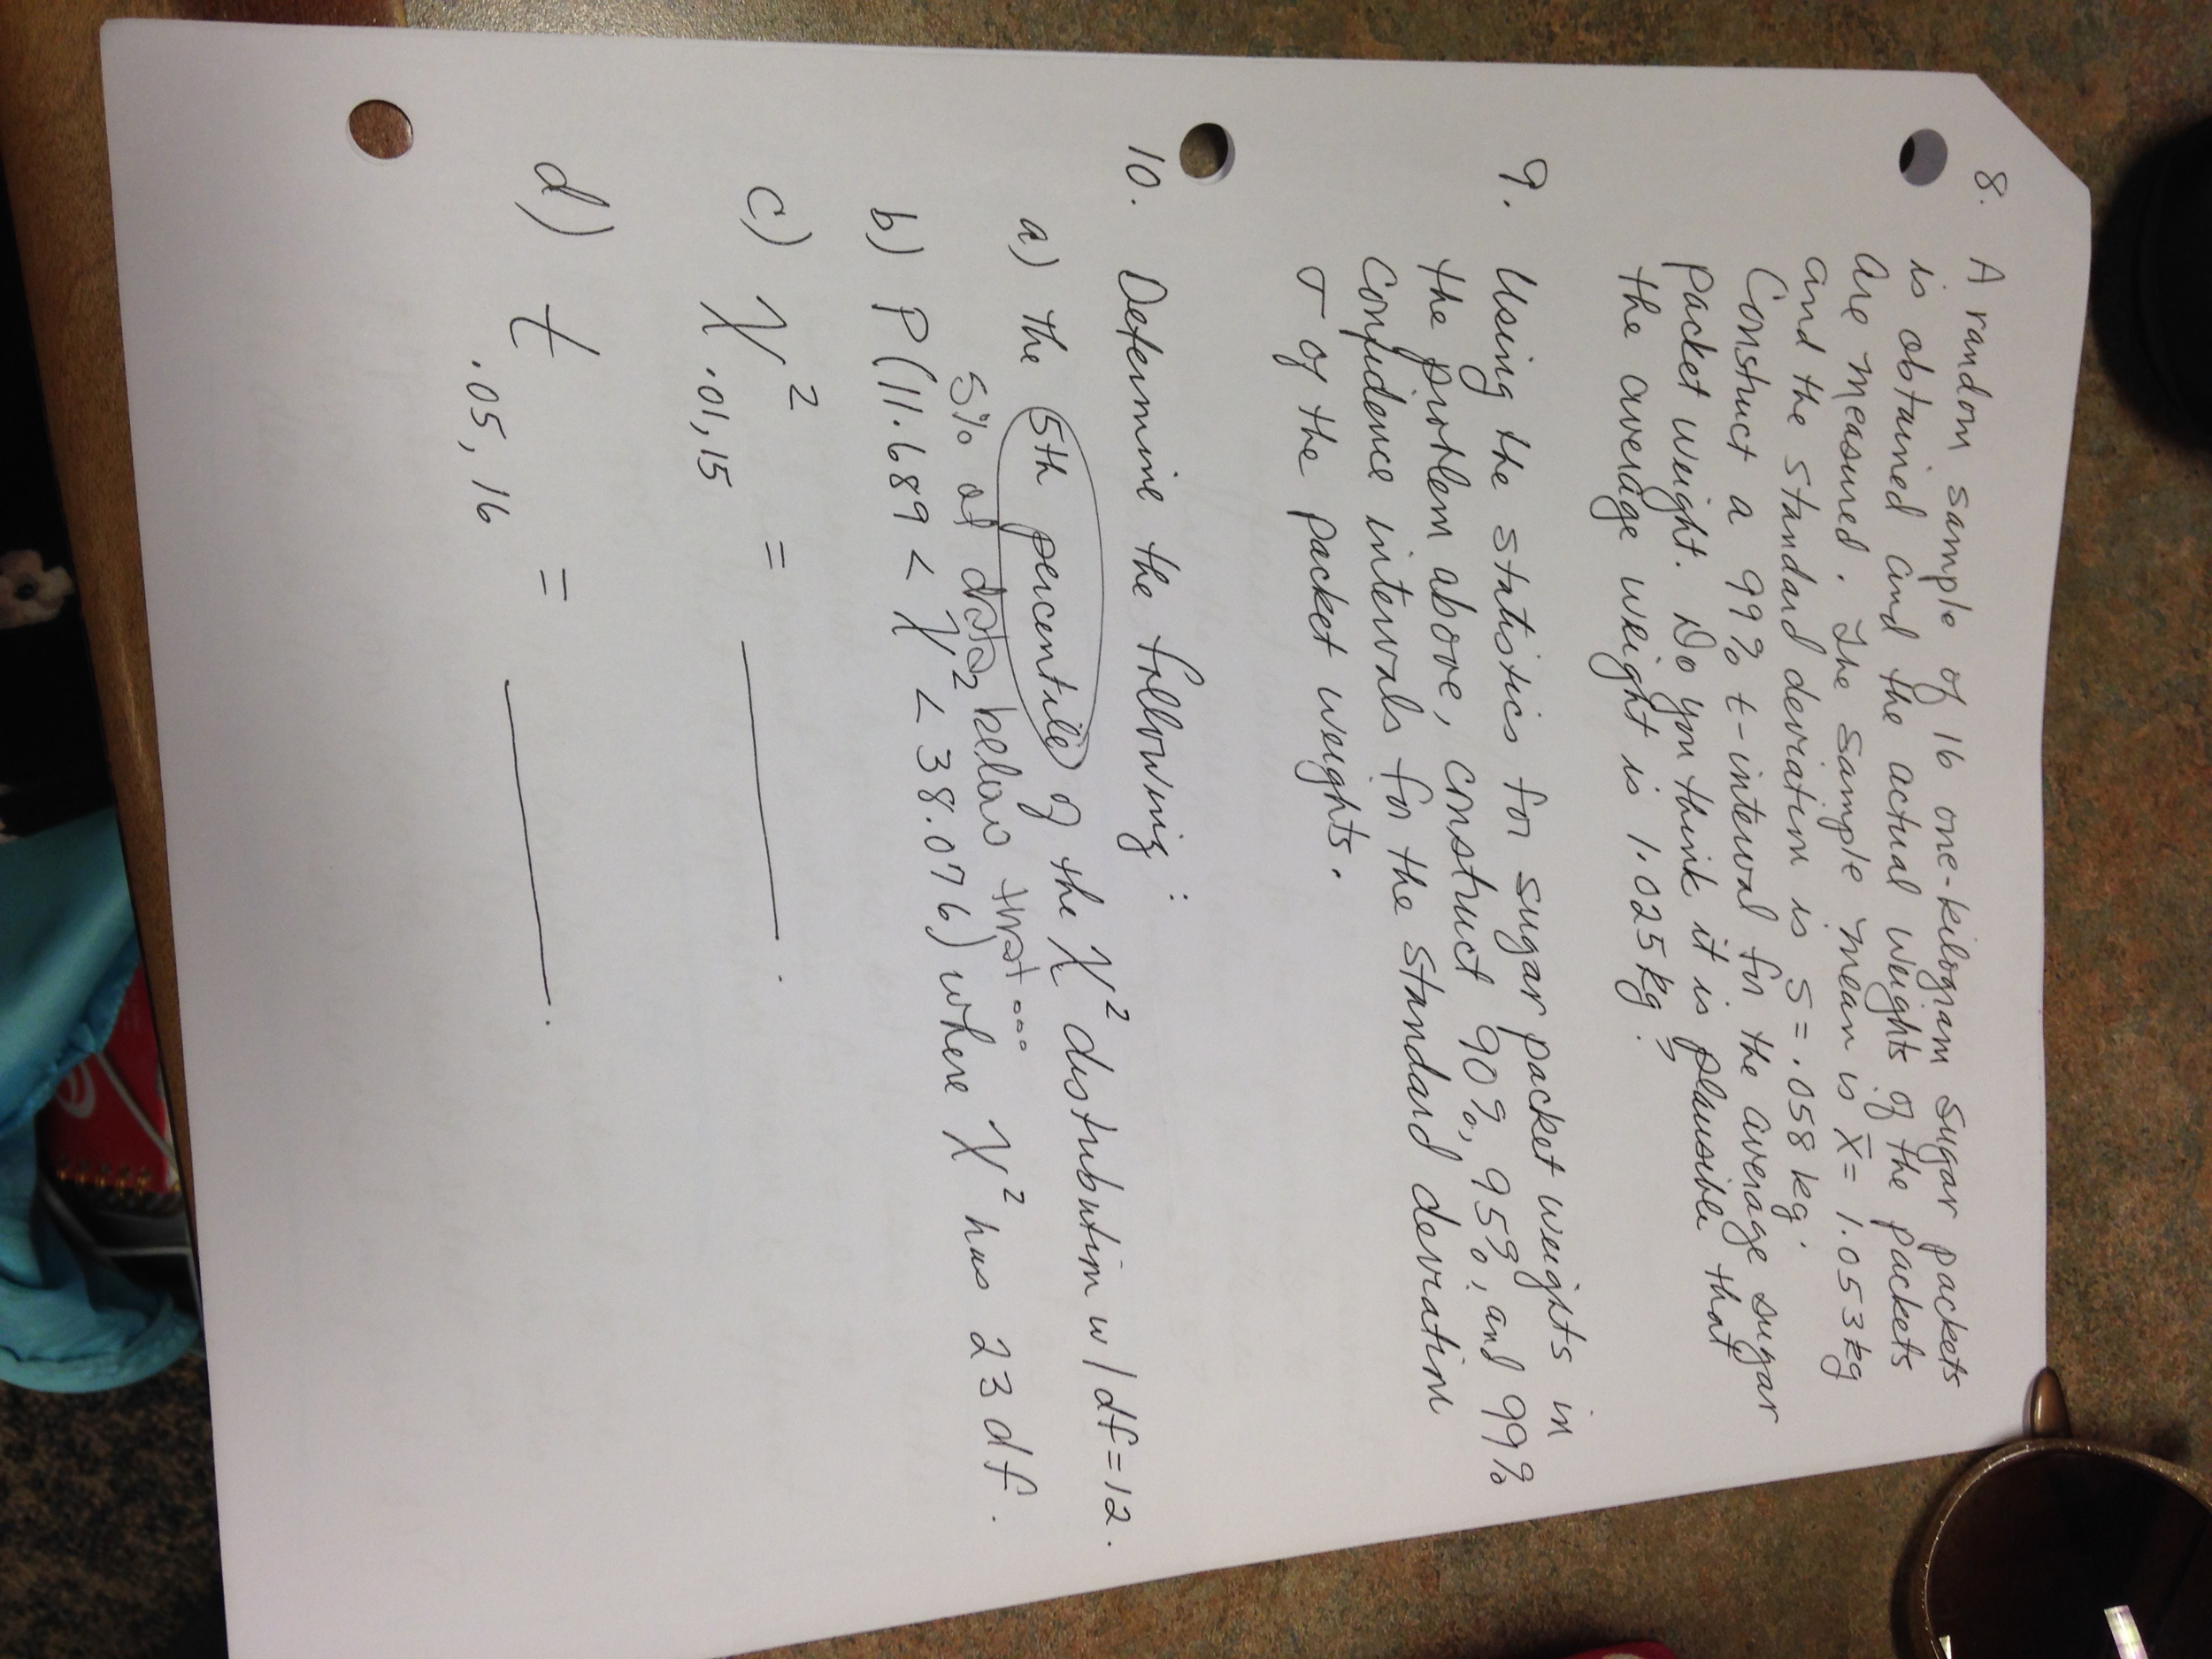 8. A random sample of 16 one-kilogram sugar packets
is obtained and the actual weights of the packets
are measured. The sample mean is x̄ = 1.053 kg
and the standard deviation is s = .058 kg.
Construct a 99% t-interval for the average sugar
packet weight. Do you think it is plausible that
the average weight is 1.025 kg?
9. Using the statistics for sugar packet weights in
the problem above, construct 90%, 95%, and 99%
confidence intervals for the standard deviation
σ of the packet weights.
10. Determine the following:
a) the 5th percentile of the χ² distribution w/ df=12.
5% of data below that...
b) P(11.689 < χ² < 38.076) where χ² has 23 df.
c) χ² .01, 15 = ______.
d) t .05, 16 = ______.